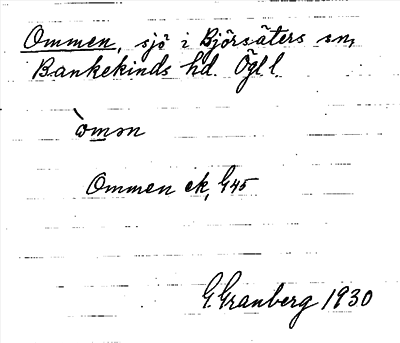 Ommen, sjö i Björsäters sn,
Bankekinds hd. Ögl l.
òmən
Ommen ek, G45
G. Granberg 1930